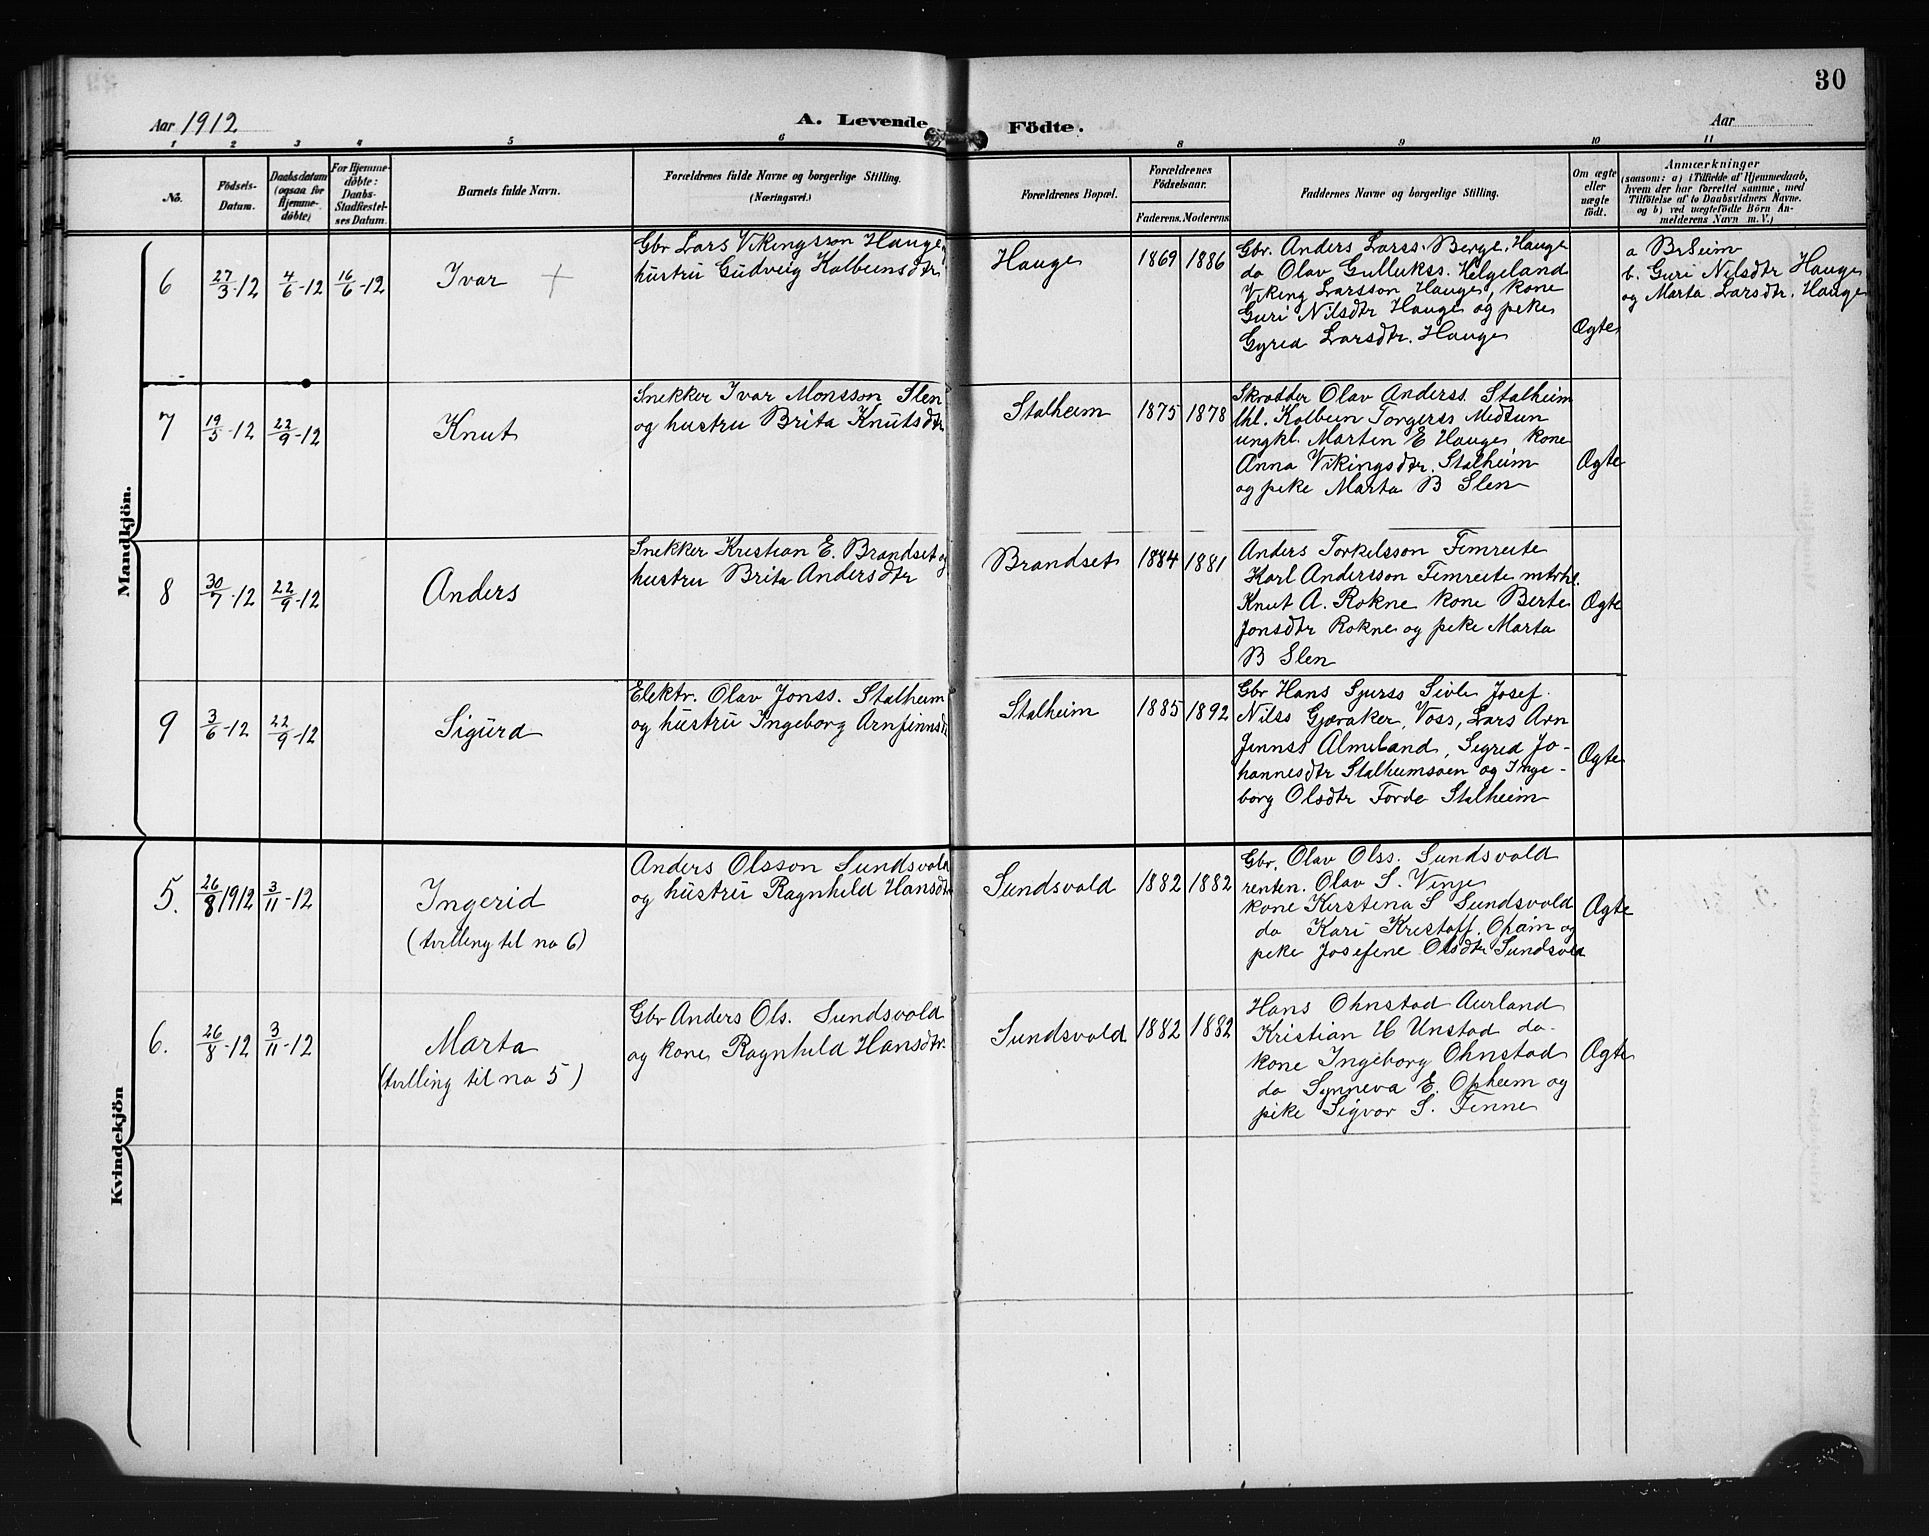 30
Aar 1912
A. Levende
Födte.
Aar
1 2 3 4 5 6 8 9 10 11
No.
Födsels-
Datum.
Daabsdatum
(ogsaa for
Hjemme-
döbte)
For Hjemme-
döbte:
Daabs-
Stadfæstel-
ses Datum.
Barnets fulde Navn.
Forældrenes fulde Navne og borgerlige Stilling.
(Næringsvei.)
Forældrenes Bopæl.
Forældrenes
Födselsaar.
Faderens. Moderens.
Faddernes Navne og borgerlige Stilling.
Om ægte
eller
uægte
født.
Anmærkninger
(saasom: a) i Tilfælde af Hjemmedaab,
hvem der har forrettet samme, med
Tilföielse af to Daabsvidners Navne.
og b) ved uægtefödte Börn An-
melderens Navn m. V.)
Mandkjön.
6
27/3-12
4/6-12
16/6-12
Ivar +
Gbr Lars Vikingsson Hauge,
hustru Gudveig Kolbeinsdtr
Hauge
1869
1886
Gbr. Anders Larss. Berge, Hauge
do Olav Gulleikss. Helgeland
Viking Larsson Hauge, kone
Guri Nilsdtr Hauge og pike
Gyrid Larsdtr. Hauge
Ægte
a B Seim
b. Guri Nilsdtr Hauge
og Marta Larsdtr. Hauge
7
19/5-12
22/9-12
Knut
Snekker Ivar Monsson Slen
og hustru Brita Knutsdtr
Stalheim
1875
1878
Skrædder Olav Anderss. Stalheim
Kolbein Torgerss Medtun
ungkl. Martin E Hauge kone
Anna Vikingsdtr. Stalheim
og pike Marta B Slen
Ægte
8
30/7-12
22/9-12
Anders
Snekker Kristian E. Brandset og
hustru Brita Andersdtr
Brandset
1884
1881
Anders Torkelsson Fimreite
Karl Andersson Fimreite
Knut A. Rokne kone Berte
Jonsdtr Rokne og pike Marta
B Slen
Ægte
9
3/6-12
22/9-12
Sigurd
Elektr. Olav Jonss. Stalheim
og hustru Ingeborg Arnfinnsd
Stalheim
1885
1892
Gbr Hans Sjurss Sivle Josef
Nilss Gjøraker, Voss, Lars Arn
finnss Almeland, Sigrid Jo-
hannesdtr Stalheimsøen og Inge-
borg Olsdtr Førde Stalheim
Ægte
Kvindekjön
5.
26/8 1912
3/11-12
Ingerid
(tvilling til no 6)
Anders Olsson Sundsvald
og hustru Ragnhild Hansdtr
Sundsvald
1882
1882
Gbr. Olav Olss. Sundsvald
renten. Olav S. Vinje
kone Kirstina S Sundsvold
do Kari Kristoff. Opheim og
pike Josefine Olsdtr Sundsvold
Ægte
6.
26/8-12
3/11-12
Marta
(tvilling til no 5)
Gbr Anders Ols. Sundsvold
og kone Ragnhild Hansdtr.
Sundsvald
1882
1882
Hans Ohnstad Aurland
Kristian H Unstad do.
kone Ingeborg Ohnstad
do Synneva E. Opheim og
pike Sigvor S. Finne
Ægte